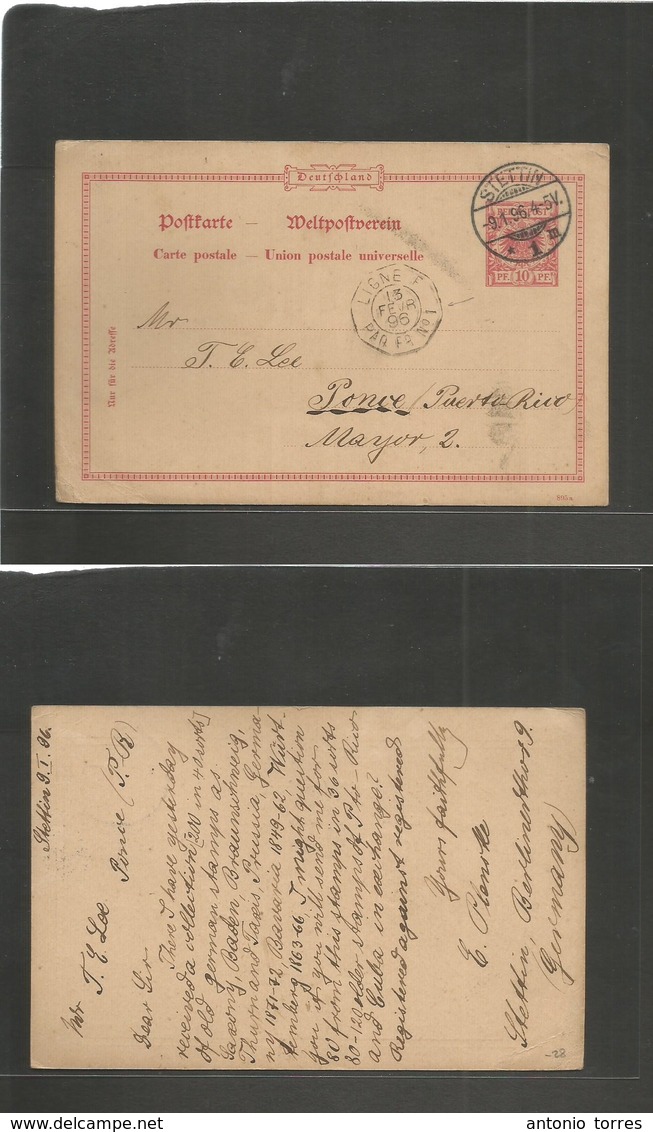 Deutschland
Postkarte — Weltpostverein
Carte postale — Union postale universelle
Nur für die Adresse
STETTIN
-9.1.96.4-5V.
* 1 m
PF. 10 PF.
LIGNE F
13
FEVR
96
PAQ. FR. No 1
Mr
T. E. Lee
Ponce (Puerto-Rico)
Mayor, 2.
895a
Stettin 9. I. 96.
Mr T. E. Lee Ponce (P. R)
Dear Sir
There I have yesterday
received a collection (210 in 40 sorts)
of old german stamps as
Saxony, Baden, Braunschweig,
Thurn and Taxis, Prussia, Germa-
ny 1871-72 Bavaria 1849-62, Würt-
temberg 1863-66 I might question
you if you will send me for
80 from this stamps in 36 sorts
80-120 older stamps of Pto-Rico
and Cuba in exchange?
Registered against registered
Yours faithfully
Stettin, Berlinerthor 9.
(Germany)
-28
antonio torres